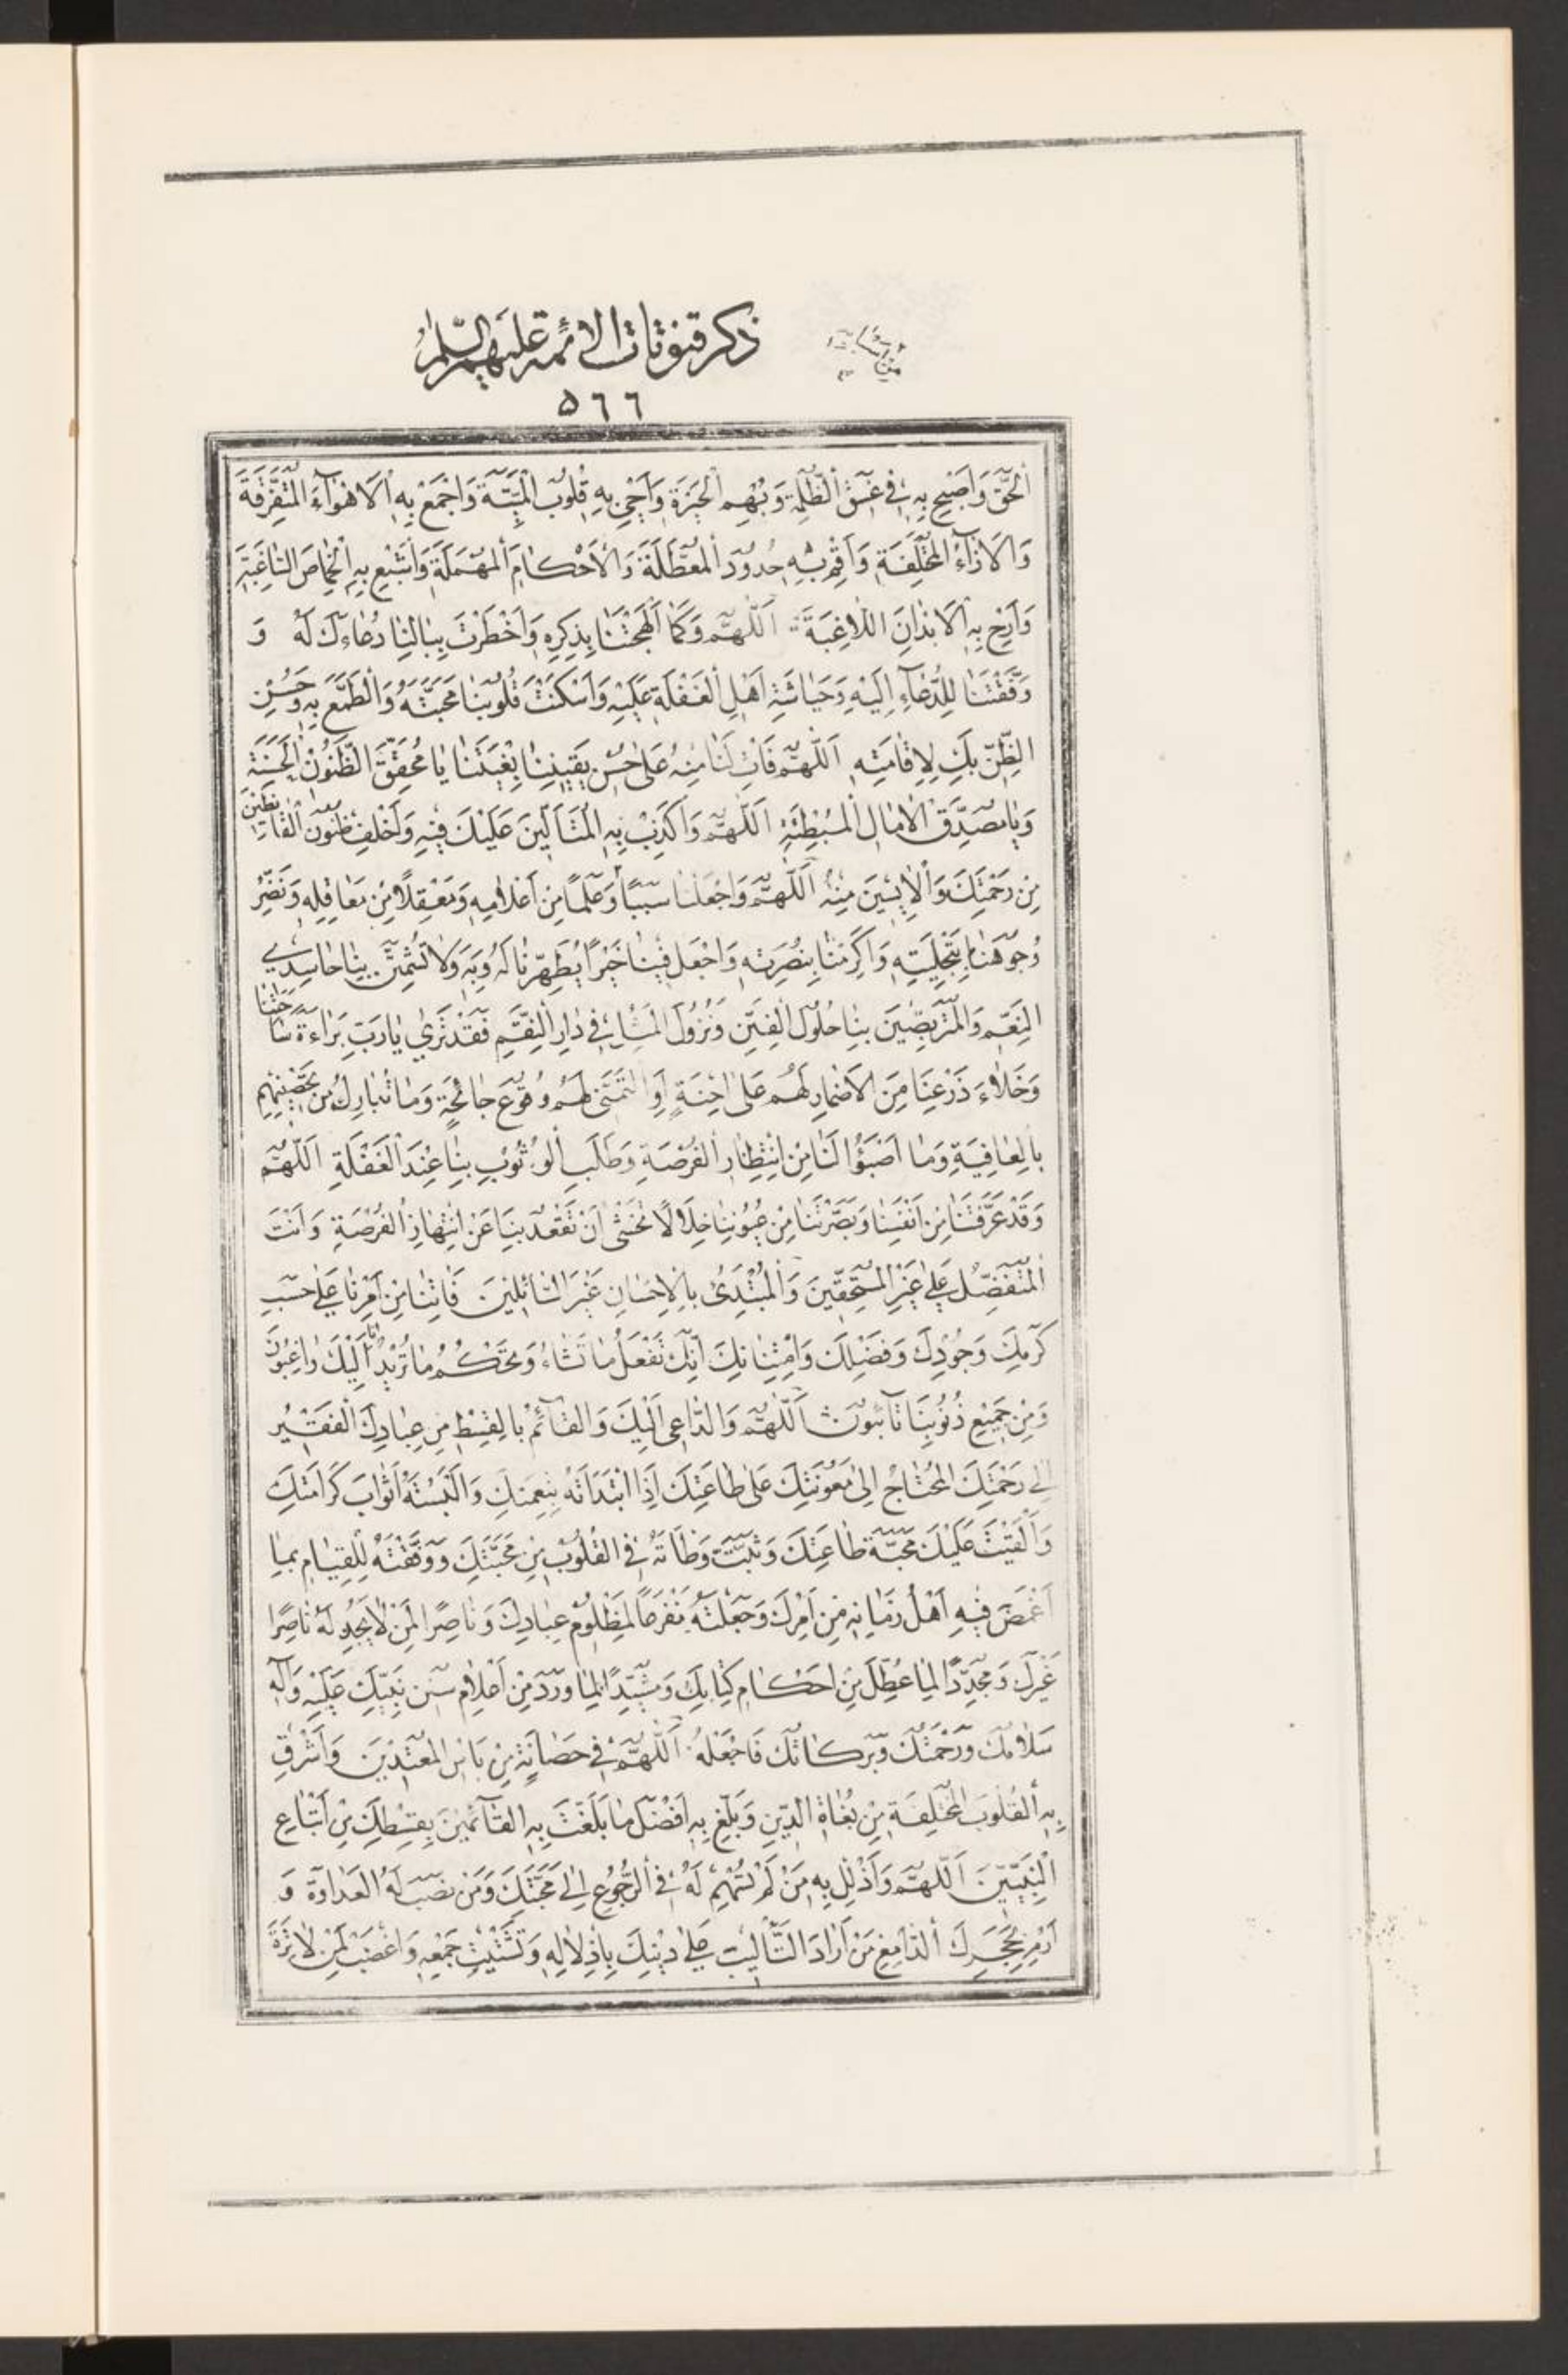 ذكر قنوتات الائمة عليهم السلام
٥٦٦
الْحَقِّ وَاَصْبِحْ بِهِ فِى غَسَقِ الظُّلَمِ وَبُهَمِ الْحَيْرَةِ وَاَحْىِ بِهِ الْقُلُوبَ الْمَيِّتَةَ وَاجْمَعْ بِهِ الْاَهْوَآءَ الْمُتَفَرِّقَةَ
وَالْاٰرٰآءَ الْمُخْتَلِفَةَ وَاَقِمْ بِهِ الْحُدُودَ الْمُعَطَّلَةَ وَالْاَحْكٰامَ الْمُهْمَلَةَ وَاَشْبِعْ بِهِ الْخِمٰاصَ السّٰاغِبَةَ
وَاَرِحْ بِهِ الْاَبْدٰانَ اللّاغِبَةَ اَللّٰهُمَّ وَكَمٰا اَلْهَجْتَنٰا بِذِكْرِهِ وَاَخْطَرْتَ بِبٰالِنٰا دُعٰاءَكَ لَهُ وَ
وَفَّقْتَنٰا لِلدُّعٰآءِ اِلَيْهِ وَحِيٰاشَةِ اَهْلِ الْغَفْلَةِ عَلَيْهِ وَاَسْكَنْتَ قُلُوبَنٰا مَحَبَّتَهُ وَالطَّمَعَ بِهِ وَحُسْنَ
الظَّنِّ بِكَ لِاِقٰامَتِهِ اَللّٰهُمَّ فَاٰتِ لَنٰا مِنْهُ عَلىٰ حُسْنِ يَقِينِنٰا بِغْيَتَنٰا يٰا مُحَقِّقَ الظُّنُونِ الْحَسَنَةِ
وَيٰا مُصَدِّقَ الْاٰمٰالِ الْمُبْطِئَةِ اَللّٰهُمَّ وَاَكْذِبْ بِهِ الْمُتَاَلِّينَ عَلَيْكَ فِيهِ وَاَخْلِفْ بِهِ ظُنُونَ الْقٰانِطِينَ
مِنْ رَحْمَتِكَ وَالْاٰيِسِينَ مِنْهُ اَللّٰهُمَّ وَاجْعَلْنٰا سَبَباً وَعَلَماً مِنْ اَعْلٰامِهِ وَمَعْقِلاً مِنْ مَعٰاقِلِهِ وَنَضِّرْ
وُجُوهَنٰا بِتَحْلِيَتِهِ وَاَكْرِمْنٰا بِنُصْرَتِهِ وَاجْعَلْ فِينٰا خَيْراً يُطَهِّرُنٰا لَهُ وَبِهِ وَلٰا تُشْمِتْ بِنٰا حٰاسِدِى
النِّعَمِ وَالْمُتَرَبِّصِينَ بِنٰا حُلُولَ الْفِتَنِ وَنُزُولَ الْمُثْلِ فِى دٰارِ النِّقَمِ فَقَدْ تَرىٰ يٰا رَبِّ بَرٰاءَةَ سٰاحَتِنٰا
وَخَلٰاءَ ذَرْعِنٰا مِنَ الْاِضْمٰارِ لَهُمْ عَلىٰ اِحْنَةٍ اَوِ التَّمَنّى لَهُمْ وُقُوعَ جٰائِحَةٍ وَمٰا تَبٰارَكَ مِنْ تَحْصِينِهِمْ
بِالْعٰافِيَةِ وَمٰا اَضْبَؤُا لَنٰا مِنِ انْتِظٰارِ الْفُرْصَةِ وَطَلَبِ الْوُثُوبِ بِنٰا عِنْدَ الْغَفْلَةِ اَللّٰهُمَّ
وَقَدْ عَرَّفْتَنٰا مِنْ اَنْفُسِنٰا وَبَصَّرْتَنٰا مِنْ عُيُوبِنٰا خِلَالاً نَخْشىٰ اَنْ تَقْعُدَ بِنٰا عَنِ انْتِهٰازِ الْفُرْصَةِ وَاَنْتَ
الْمُتَفَضِّلُ عَلىٰ غَيْرِ الْمُسْتَحِقِّينَ وَالْمُبْتَدِئُ بِالْاِحْسٰانِ غَيْرَ السّٰائِلِينَ فَاٰتِنٰا مِنْ اَمْرِنٰا عَلىٰ حَسَبِ
كَرَمِكَ وَجُودِكَ وَفَضْلِكَ وَامْتِنٰانِكَ اِنَّكَ تَفْعَلُ مٰا تَشٰاءُ وَتَحْكُمُ مٰا تُرِيدُ اِنّٰا اِلَيْكَ رٰاغِبُونَ
وَمِنْ جَمِيعِ ذُنُوبِنٰا تٰآئِبُونَ اَللّٰهُمَّ وَالدّٰاعِى اِلَيْكَ وَالْقٰآئِمُ بِالْقِسْطِ مِنْ عِبٰادِكَ الْفَقِيرُ
اِلىٰ رَحْمَتِكَ الْمُحْتٰاجُ اِلىٰ مَعُونَتِكَ عَلىٰ طٰاعَتِكَ اِذِ ابْتَدَاْتَهُ بِنِعْمَتِكَ وَاَلْبَسْتَهُ اَثْوٰابَ كَرٰامَتِكَ
وَاَلْقَيْتَ عَلَيْكَ مَحَبَّةَ طٰاعَتِكَ وَثَبَّتَّ وَطْاَتَهُ فِى الْقُلُوبِ مِنْ مَحَبَّتِكَ وَوَفَّقْتَهُ لِلْقِيٰامِ بِمٰا
اَغْمَضَ فِيهِ اَهْلُ زَمٰانِهِ مِنْ اَمْرِكَ وَجَعَلْتَهُ مَفْزَعاً لِمَظْلُومِ عِبٰادِكَ وَنٰاصِراً لِمَنْ لٰا يَجِدُ لَهُ نٰاصِراً
غَيْرَكَ وَمُجَدِّداً لِمٰا عُطِّلَ مِنْ اَحْكٰامِ كِتٰابِكَ وَمُشَيِّداً لِمٰا وَرَدَ مِنْ اَعْلٰامِ سُنَنِ نَبِيِّكَ عَلَيْهِ وَاٰلِهِ
سَلٰامُكَ وَرَحْمَتُكَ وَبَرَكٰاتُكَ فَاجْعَلْهُ اَللّٰهُمَّ فِى حَصٰانَةٍ مِنْ بَاْسِ الْمُعْتَدِينَ وَاَشْرِقْ
بِهِ الْقُلُوبَ الْمُخْتَلِفَةَ مِنْ بُغٰاةِ الدِّينِ وَبَلِّغْ بِهِ اَفْضَلَ مٰا بَلَّغْتَ بِهِ الْقٰآئِمِينَ بِقِسْطِكَ مِنْ اَتْبٰاعِ
النَّبِيِّينَ اَللّٰهُمَّ وَاَذْلِلْ بِهِ مَنْ لَمْ تُسْهِمْ لَهُ فِى الرُّجُوعِ اِلىٰ مَحَبَّتِكَ وَمَنْ نَصَبَ لَهُ الْعَدٰاوَةَ وَ
ارْمِ بِحَجَرِكَ الدّٰامِغِ مَنْ اَرٰادَ التَّاْلِيبَ عَلىٰ دِينِكَ بِاِذْلٰالِهِ وَتَشْتِيتِ جَمْعِهِ وَاغْضَبْ لِمَنْ لٰا تِرَةَ